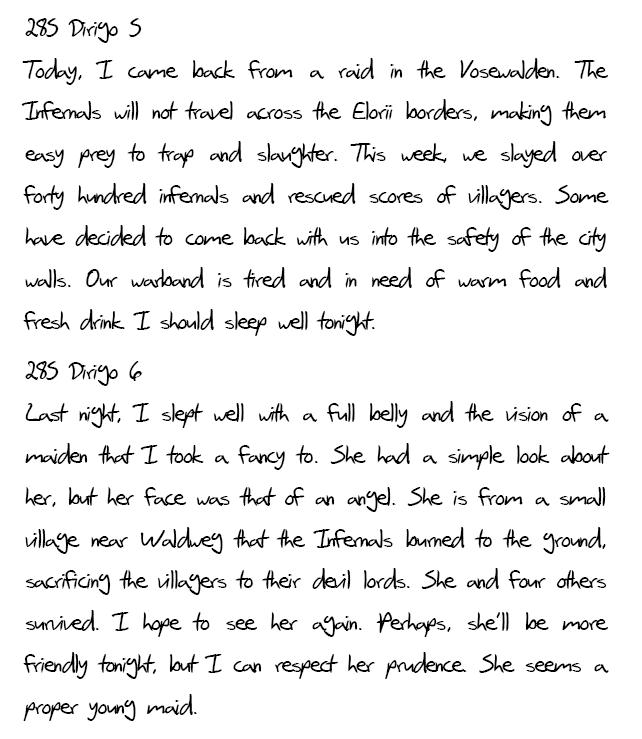 285 Dirigo 5
Today, I came back from a raid in the Vosewalden. The
Infernals will not travel across the Elorii borders, making them
easy prey to trap and slaughter. This week, we slayed over
forty hundred infernals and rescued scores of villagers. Some
have decided to come back with us into the safety of the city
walls. Our warband is tired and in need of warm food and
fresh drink. I should sleep well tonight.
285 Dirigo 6
Last night, I slept well with a full belly and the vision of a
maiden that I took a fancy to. She had a simple look about
her, but her face was that of an angel. She is from a small
village near Waldweg that the Infernals burned to the ground,
sacrificing the villagers to their devil lords. She and four others
survived. I hope to see her again. Perhaps, she'll be more
friendly tonight, but I can respect her prudence. She seems a
proper young maid.